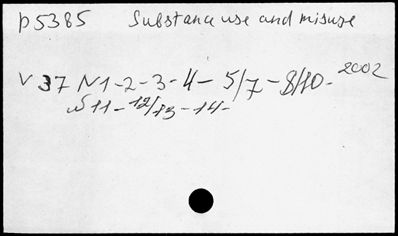 p5385 Substance use and misuse
V 37 N1-2-3-4-5/7-8/10- 2002
N11-12/13-14-